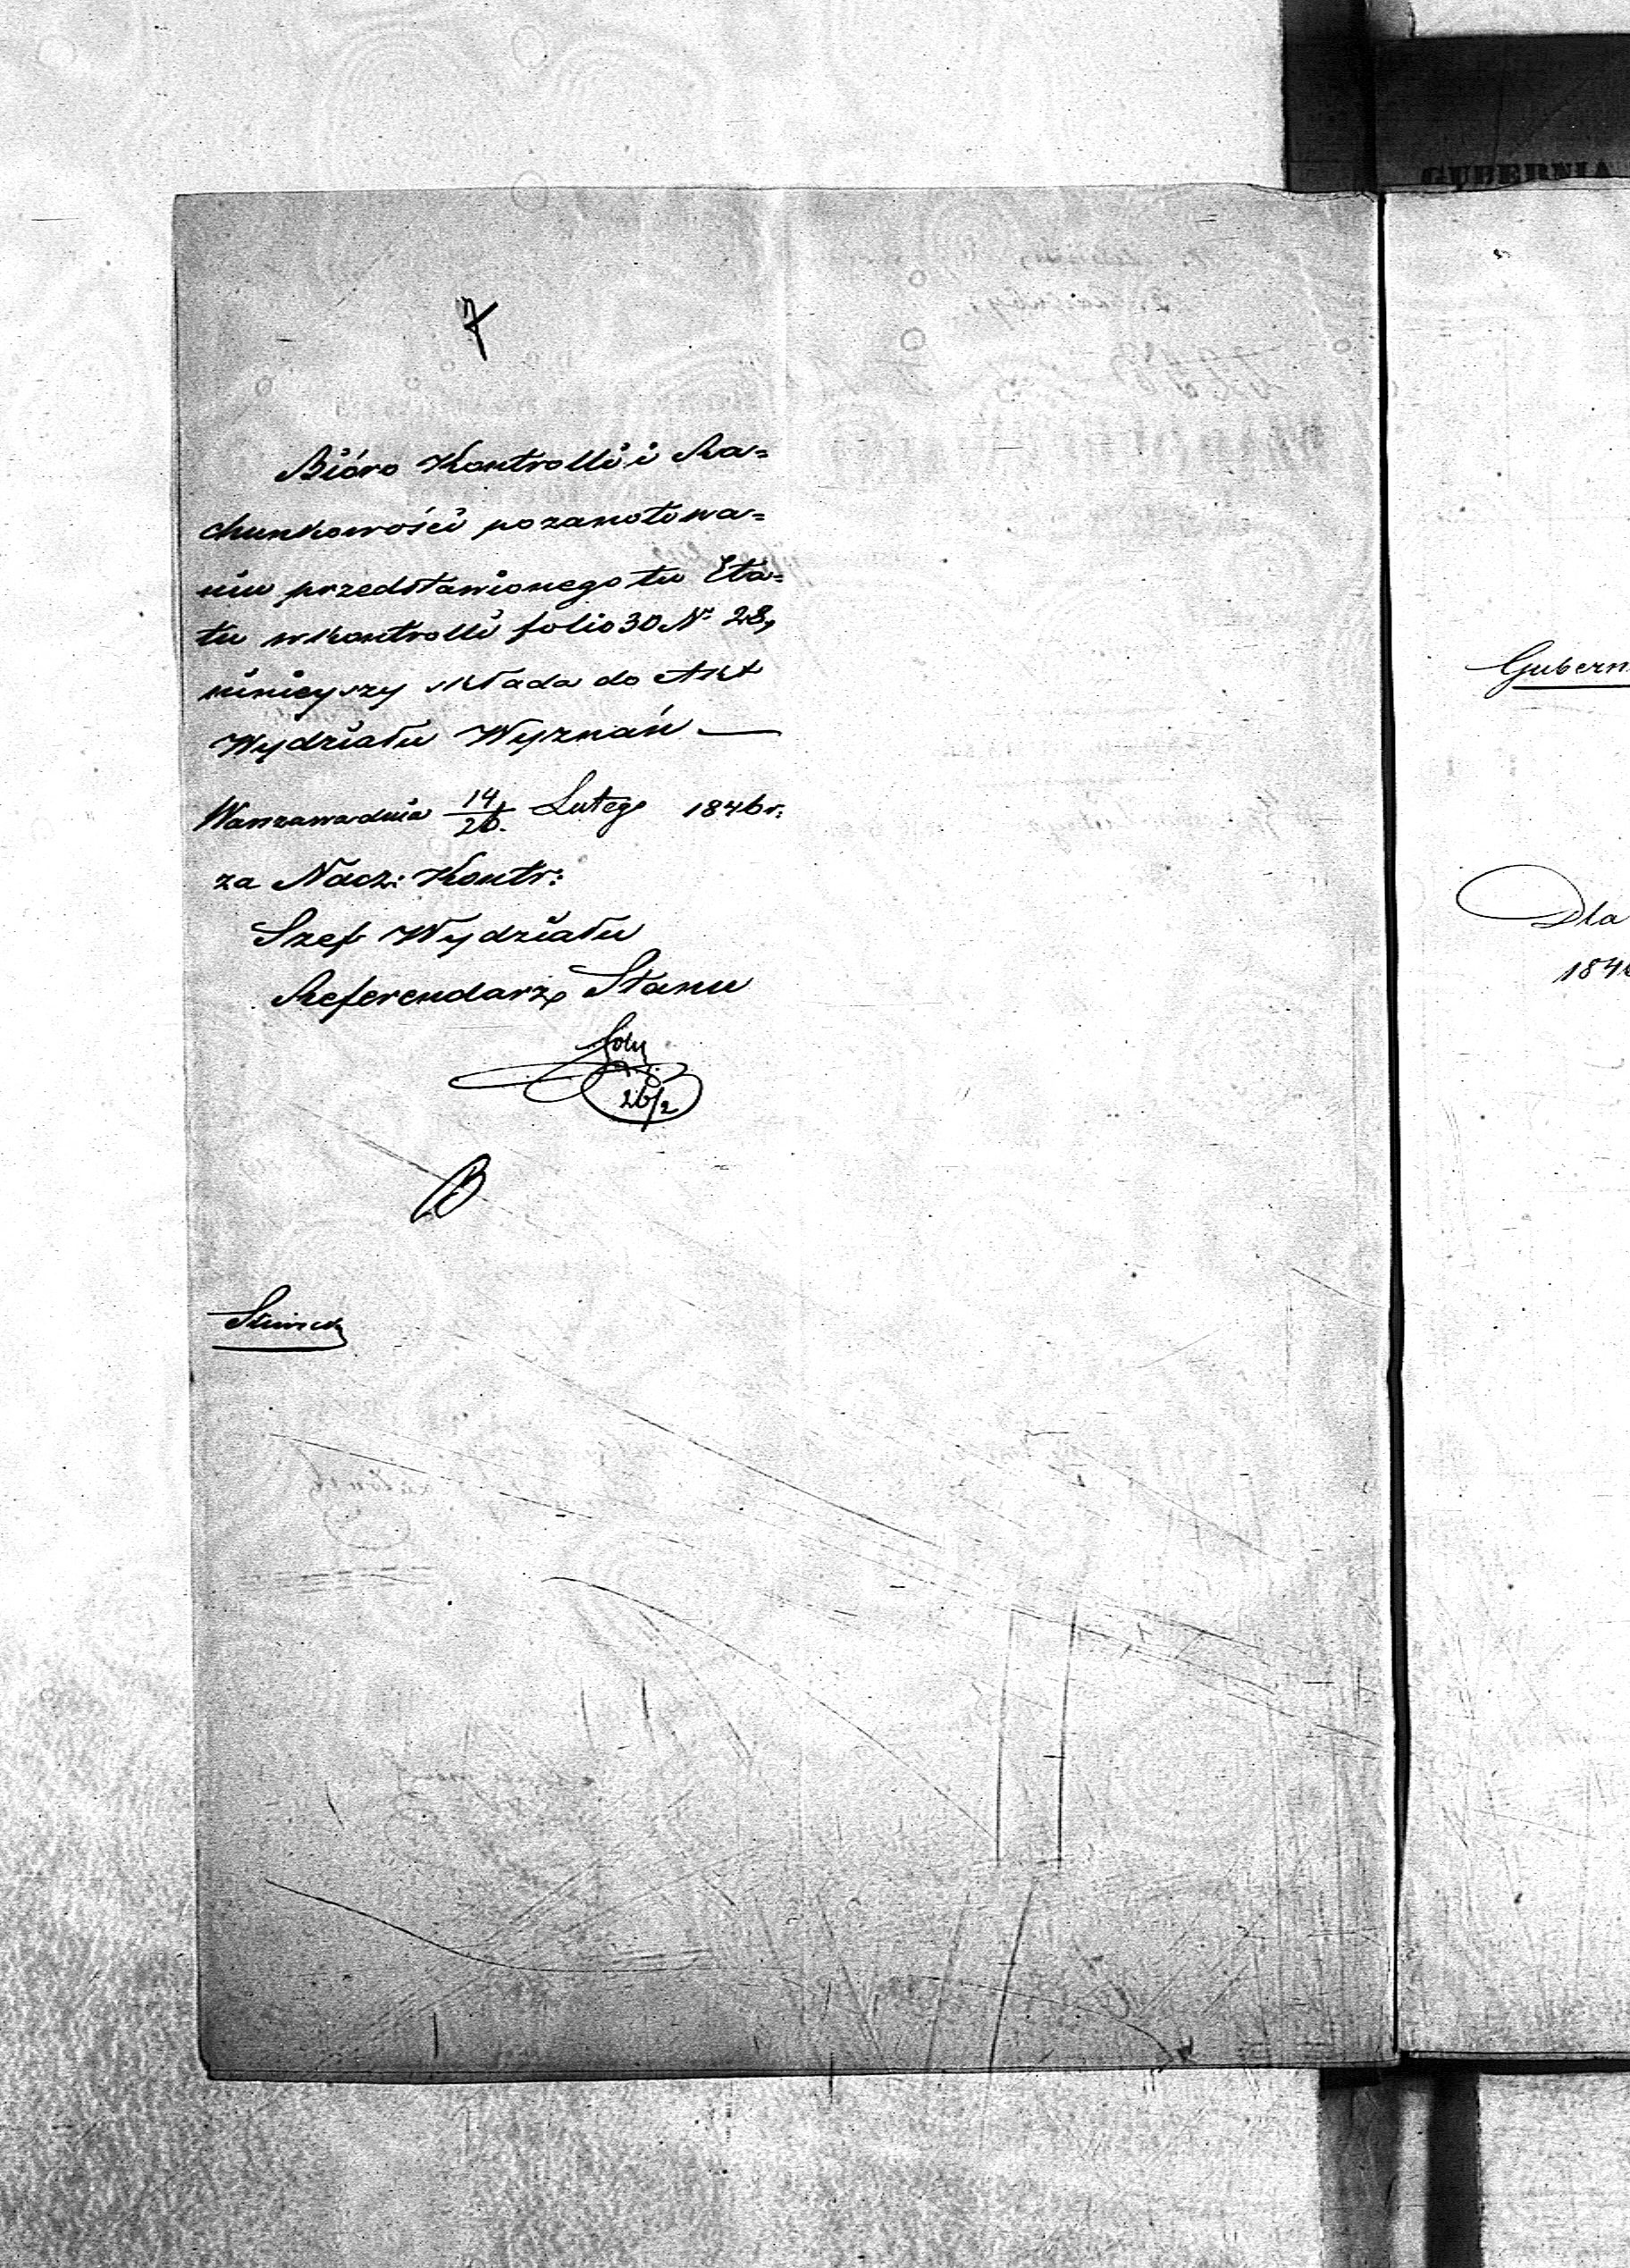 7
Bióro Kontrolli i Ra=
chunkowości po zanotowa=
niu przedstawionego tu Eta=
tu w Kontrolli folio 30 N° 28,
ninieyszy składa do Akt
Wydziału Wyznań —
Warszawa dnia 14/26. Lutego 1846 r.
za Nacz: Kontr:
Szef Wydziału
Referendarz Stanu
26/2
GUBERNIA
Gubern
Dla
184